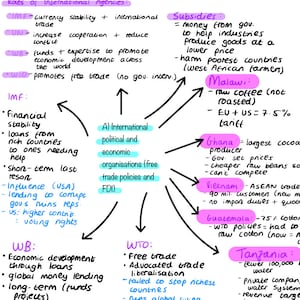 Roles of International Agencies
IMF: currency stability + international
trade
UN: increase cooperation + reduce
conflict
WB: funds + expertise to promote
economic development across
the world
WTO: promotes free trade (no gov. interv.)
Subsidies
= money from gov.
to help industries
produce goods at a
lower price
- harm poorest countries
(West African farmers)
Malawi:
- raw coffee (not
roasted)
- EU + US = 7.5%
tariff
IMF:
• Financial
stability
• loans from
rich countries
to ones needing
help
• Short-term last
resort
- Influence (USA)
- lending to corrupt
govs ruins reps
- US: higher contrib
= voting rights
A) International
political and
economic
organisations (free
trade policies and
FDI)
Ghana - largest cocoa
producer
- gov sec prices
- cheaper raw beans
- can't compete
Vietnam - ASEAN trade
- 90 mil customers
- no import duties + quotas
Guatemala - 75% cotton
- WTO policies = had to
raw cotton
WB:
• Economic development
through loans
• global money lending
• long-term (funds
projects)
WTO:
• Free trade
• Advocated trade
liberalisation
- failed to stop richest
countries
Tanzania:
- fewer 100,000
water
- Private
water
system
- revenue